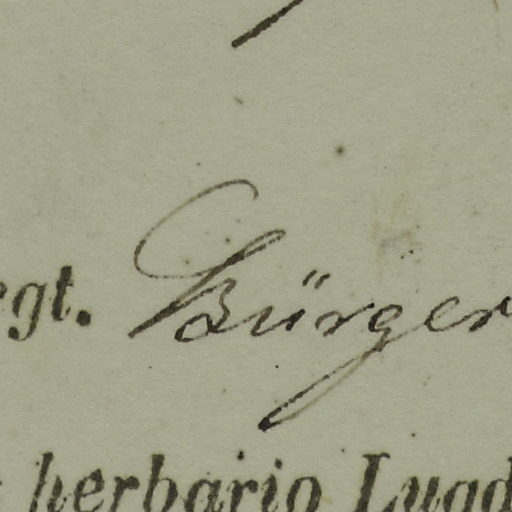 egt. Bürger
herbario Lugd